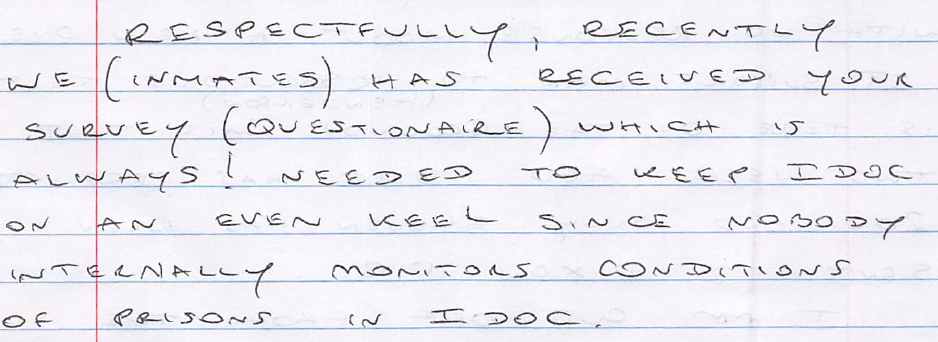 RESPECTFULLY, RECENTLY
WE (INMATES) HAS RECEIVED YOUR
SURVEY (QUESTIONAIRE) WHICH IS
ALWAYS! NEEDED TO KEEP IDOC
ON AN EVEN KEEL SINCE NOBODY
INTERNALLY MONITORS CONDITIONS
OF PRISONS IN IDOC.